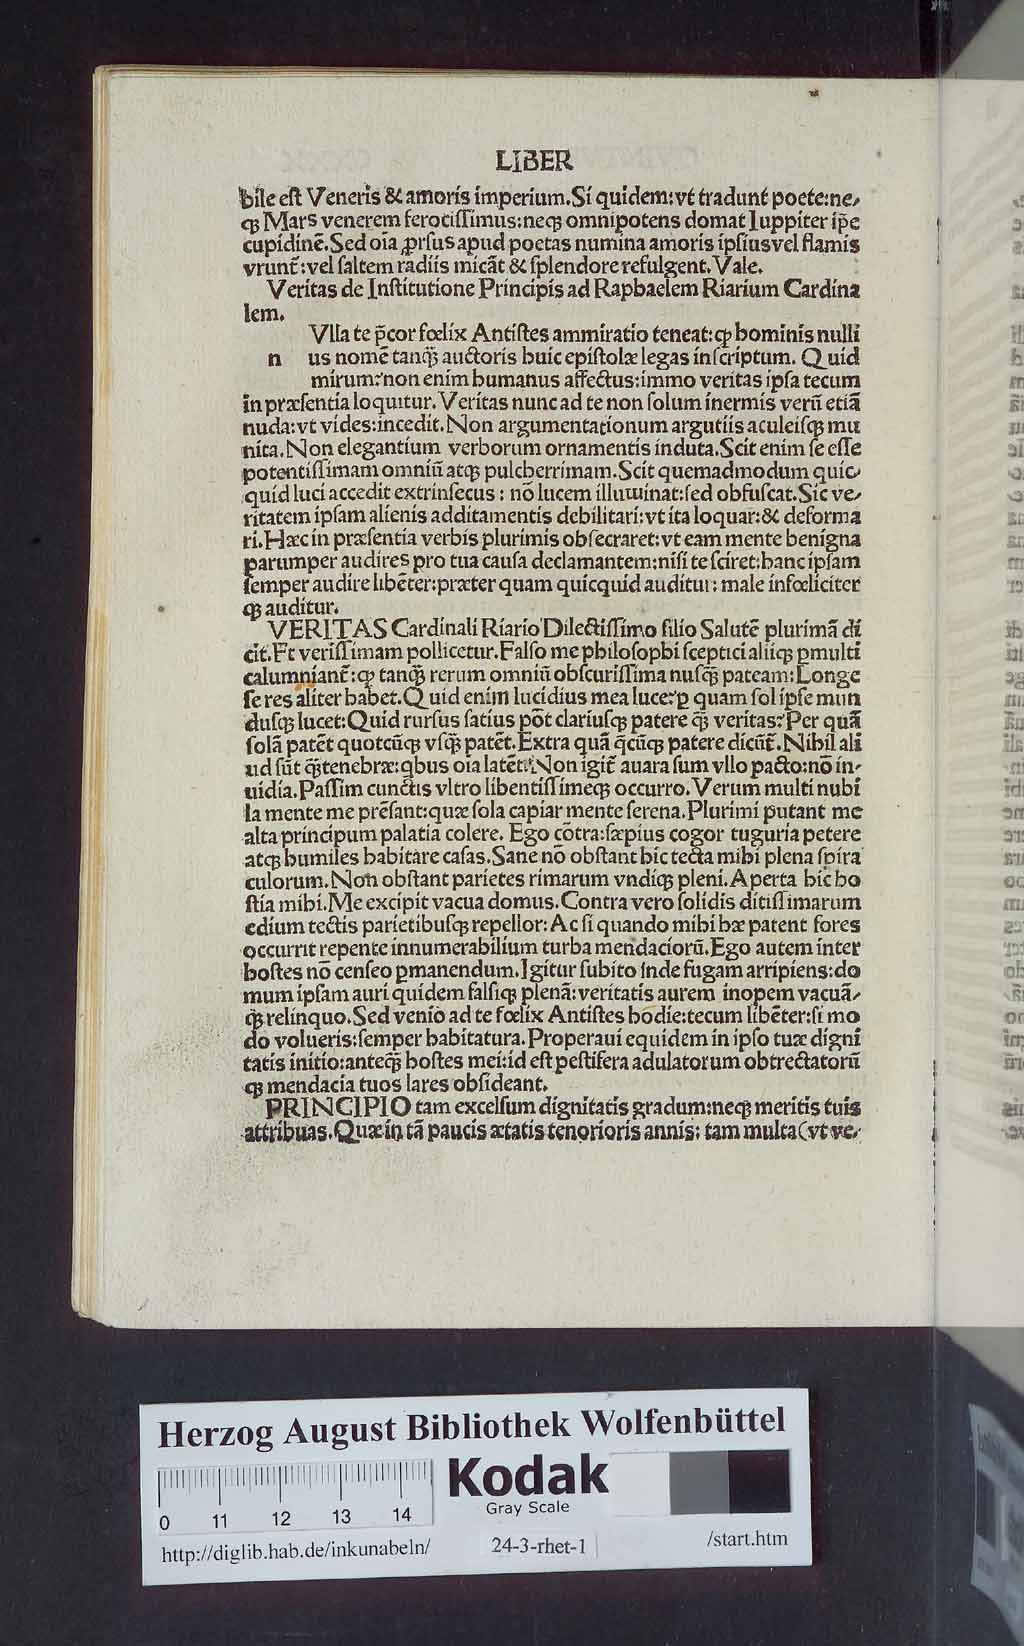 LIBER
bile eſt Veneris & amoris imperium. Si quidem: vt tradunt poete: ne/
qꝫ Mars venerem ferociſſimus: neqꝫ omnipotens domat Iuppiter ip̄e
cupidinē. Sed oīa ꝓrſus apud poetas numina amoris ipſius vel flamis
vrunt̄: vel ſaltem radiis micāt & ſplendore refulgent. Vale.
Veritas de Inſtitutione Principis ad Raphaelem Riarium Cardina
lem.
Vlla te p̄cor fœlix Antiſtes ammiratio teneat: ꝙ hominis nulli
n us nomē tanꝗ̄ auctoris huic epiſtolæ legas inſcriptum. Quid
mirum? non enim humanus affectus: immo veritas ipſa tecum
in præſentia loquitur. Veritas nunc ad te non ſolum inermis verū etiā
nuda: vt vides: incedit. Non argumentationum argutiis aculeiſqꝫ mu
nita. Non elegantium verborum ornamentis induta. Scit enim ſe eſſe
potentiſſimam omniū atqꝫ pulcherrimam. Scit quemadmodum quic/
quid luci accedit extrinſecus: nō lucem illuminat: ſed obfuſcat. Sic ve/
ritatem ipſam alienis additamentis debilitari: vt ita loquar: & deforma
ri. Hæc in præſentia verbis plurimis obſecraret: vt eam mente benigna
parumper audires pro tua cauſa declamantem: niſi te ſciret: hanc ipſam
ſemper audire libēter: præter quam quicquid auditur: male infœliciter
qꝫ auditur.
VERITAS Cardinali Riario Dilectiſſimo filio Salutē plurimā di
cit. Et veriſſimam pollicetur. Falſo me philoſophi ſceptici aliiqꝫ ꝑmulti
calumniant̄: ꝙ tanꝗ̄ rerum omniū obſcuriſſima nuſꝗ̄ pateam: Longe
ſe res aliter habet. Quid enim lucidius mea luce: ꝑ quam ſol ipſe mun
duſqꝫ lucet: Quid rurſus ſatius pōt clariuſqꝫ patere ꝗ̄ veritas? Per quā
ſolā patēt quotcūqꝫ vſꝗ̄ patēt. Extra quā q̄cūqꝫ patere dicūt̄. Nihil ali
ud ſūt ꝗ̄ tenebræ: qbus oīa latēt. Non igit̄ auara ſum vllo pacto: nō in/
uidia. Paſſim cunctis vltro libentiſſimeqꝫ occurro. Verum multi nubi
la mente me prēſant: quæ ſola capiar mente ſerena. Plurimi putant me
alta principum palatia colere. Ego cōtra: ſæpius cogor tuguria petere
atqꝫ humiles habitare caſas. Sane nō obſtant hic tecta mihi plena ſpira
culorum. Non obſtant parietes rimarum vndiqꝫ pleni. Aperta hic ho
ſtia mihi. Me excipit vacua domus. Contra vero ſolidis ditiſſimarum
edium tectis parietibuſqꝫ repellor: Ac ſi quando mihi hæ patent fores
occurrit repente innumerabilium turba mendaciorū. Ego autem inter
hoſtes nō cenſeo ꝑmanendum. Igitur ſubito inde fugam arripiens: do
mum ipſam auri quidem falſiqꝫ plenā: veritatis aurem inopem vacuā/
ꝗ̄ relinquo. Sed venio ad te fœlix Antiſtes hodie: tecum libēter: ſi mo
do volueris: ſemper habitatura. Properaui equidem in ipſo tuæ digni
tatis initio: anteꝗ̄ hoſtes mei: id eſt peſtifera adulatorum obtrectatorū
qꝫ mendacia tuos lares obſideant.
PRINCIPIO tam excelſum dignitatis gradum: neqꝫ meritis tuis
attribuas. Quæ in tā paucis ætatis tenorioris annis: tam multa (vt ve/
Herzog August Bibliothek Wolfenbüttel
Kodak
Gray Scale
0 11 12 13 14
http://diglib.hab.de/inkunabeln/ 24-3-rhet-1 /start.htm